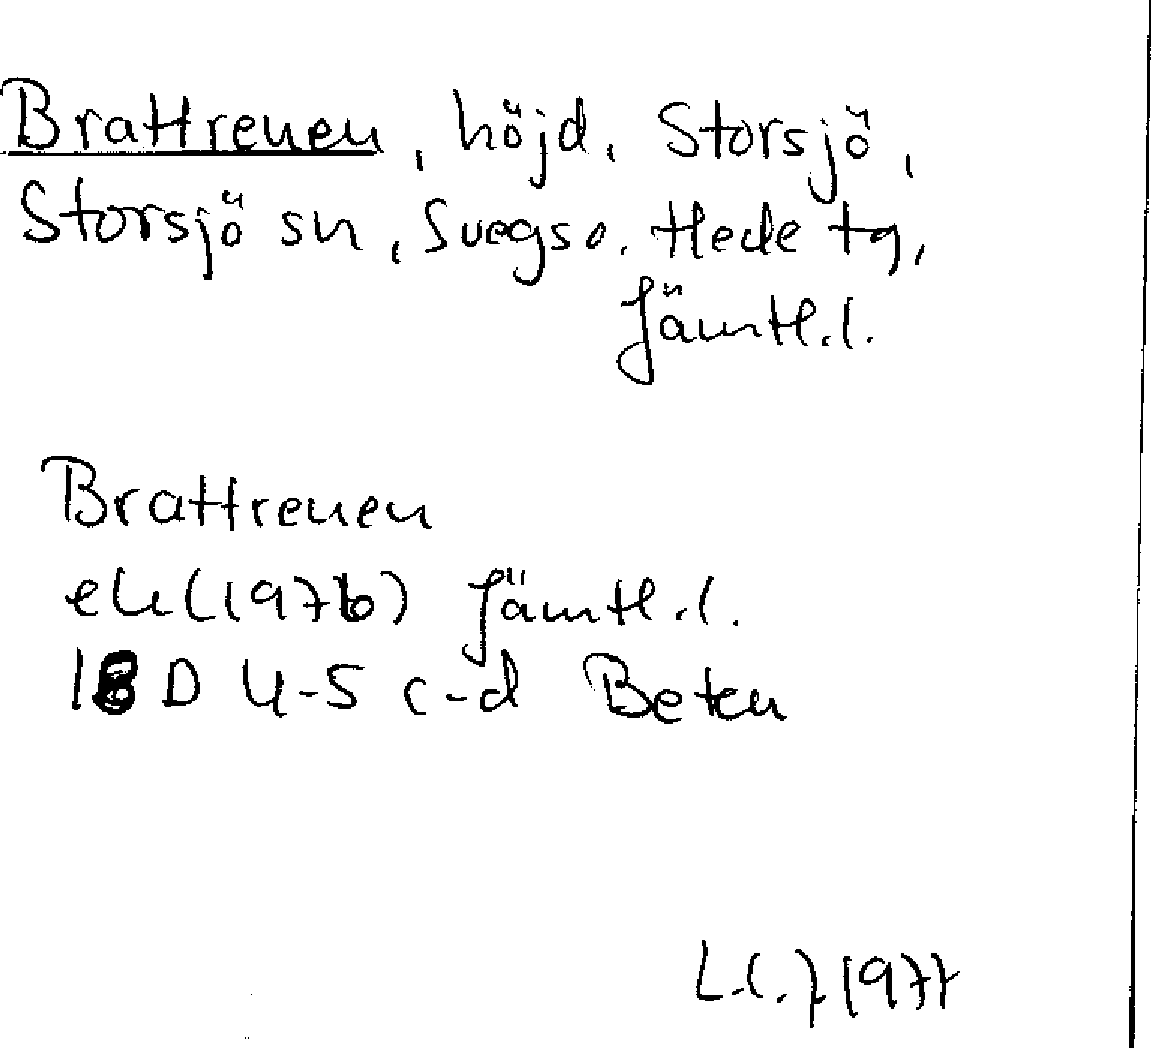 Brattrenen, höjd, Storsjö,
Storsjö sn, Svegs o. Hede tg,
Jämtl.l.
Brattrenen
ek (1976) Jämtl.l.
18 D 4-5 c-d Beten
1977